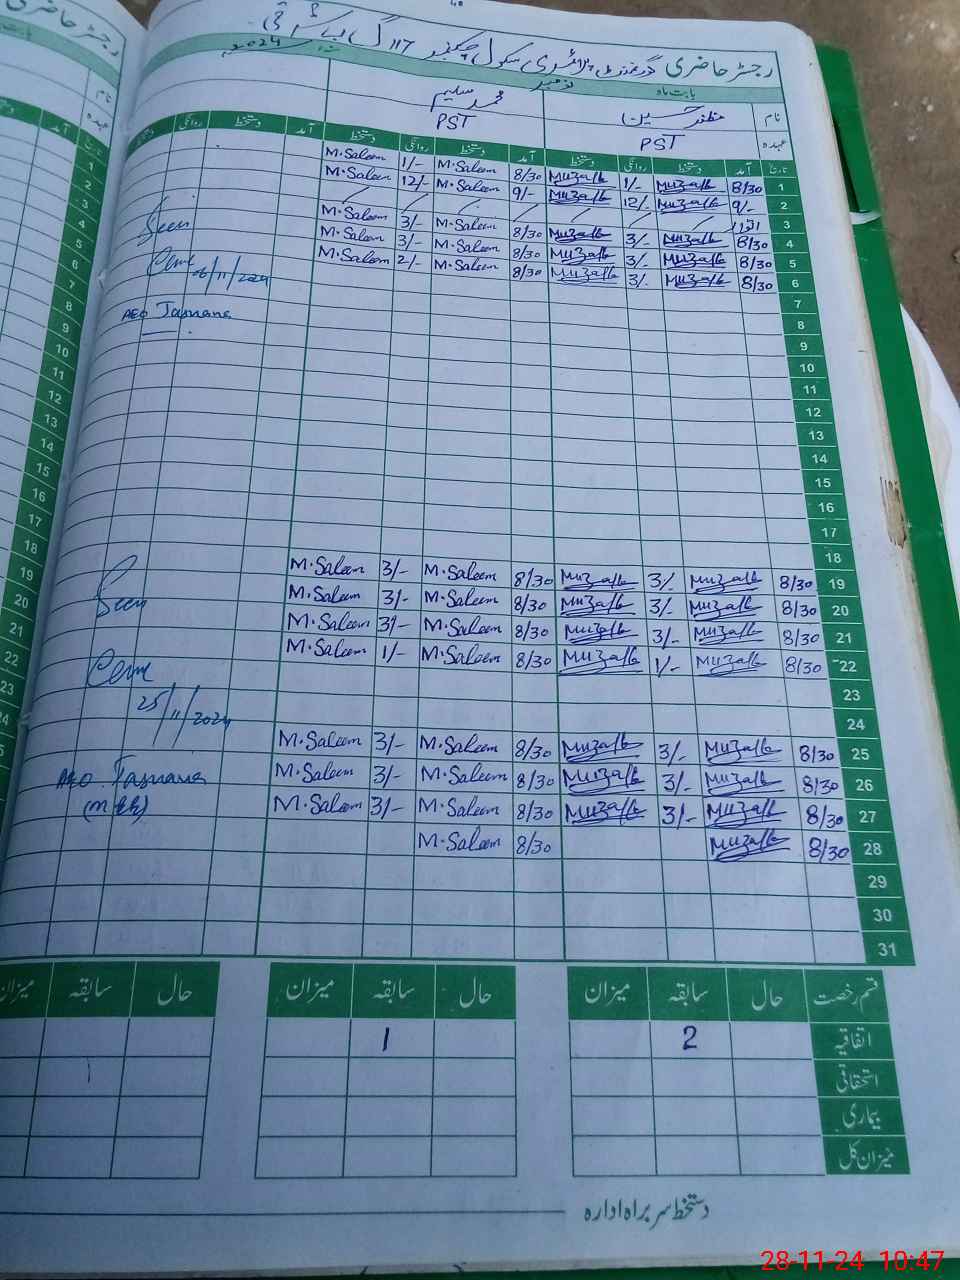 رجسٹر حاضری گورنمنٹ پرائمری سکول چک نمبر 117
بابت ماہ نومبر 2024
نام مظفر حسین محمد سلیم
عہدہ PST PST
تاریخ آمد دستخط روانگی دستخط آمد دستخط روانگی دستخط آمد دستخط روانگی دستخط
1 8/30 Muzaffar 1/- Muzaffar 8/30 M.Saleem 1/- M.Saleem
2 9/- Muzaffar 12/- Muzaffar 9/- M.Saleem 12/- M.Saleem
3 اتوار
4 8/30 Muzaffar 3/- Muzaffar 8/30 M.Saleem 3/- M.Saleem
5 8/30 Muzaffar 3/- Muzaffar 8/30 M.Saleem 3/- M.Saleem
6 8/30 Muzaffar 3/- Muzaffar 8/30 M.Saleem 2/- M.Saleem
Seen
06/11/2024
AEO Tasnana
7
8
9
10
11
12
13
14
15
16
17
18
19 8/30 Muzaffar 3/- Muzaffar 8/30 M.Saleem 3/- M.Saleem
20 8/30 Muzaffar 3/- Muzaffar 8/30 M.Saleem 3/- M.Saleem
21 8/30 Muzaffar 3/- Muzaffar 8/30 M.Saleem 3/- M.Saleem
22 8/30 Muzaffar 1/- Muzaffar 8/30 M.Saleem 1/- M.Saleem
Seen
25/11/2024
AEO Tasnana
23
24
25 8/30 Muzaffar 3/- Muzaffar 8/30 M.Saleem 3/- M.Saleem
26 8/30 Muzaffar 3/- Muzaffar 8/30 M.Saleem 3/- M.Saleem
27 8/30 Muzaffar 3/- Muzaffar 8/30 M.Saleem 3/- M.Saleem
28 8/30 Muzaffar 8/30 M.Saleem
29
30
31
قسم رخصت حال سابقہ میزان حال سابقہ میزان حال سابقہ میزان
اتفاقیہ 2 1
استحقاقی
بیماری
میزان کل
دستخط سربراہ ادارہ
28-11-24 10:47